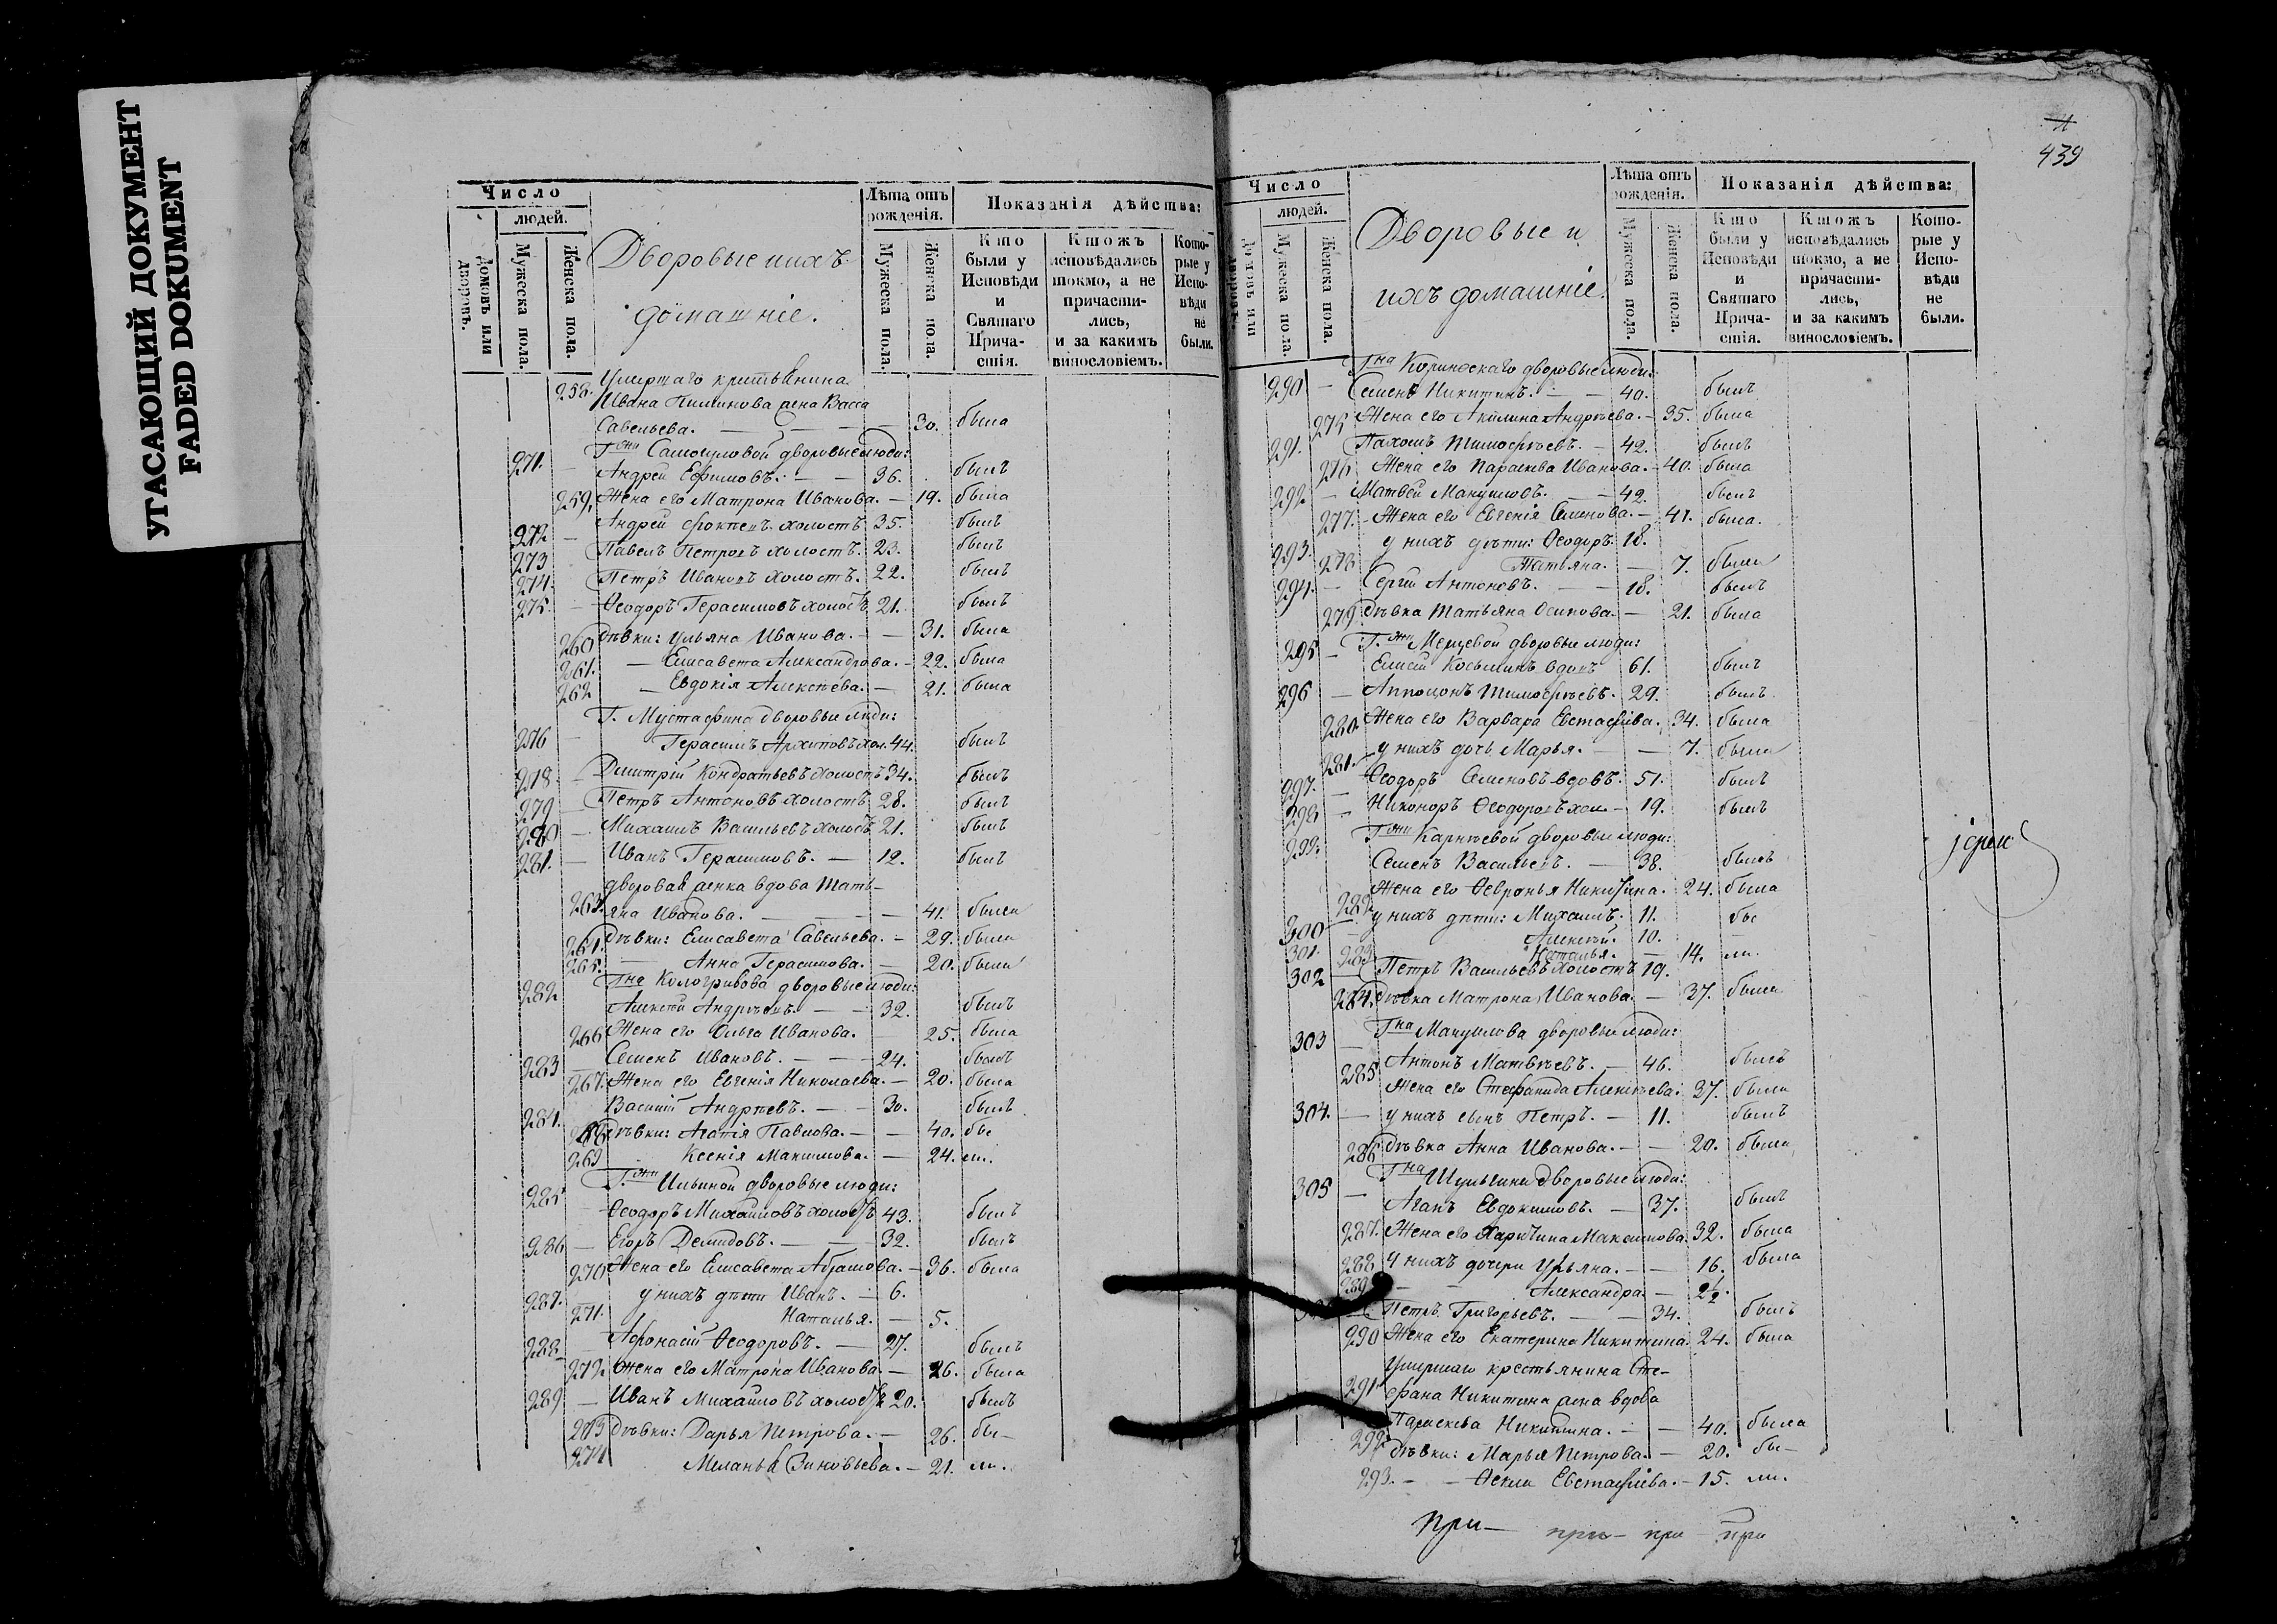 УГАСАЮЩИЙ ДОКУМЕНТ
FADED DOKUMENT
Число
людей.
домовъ или дворовъ.
Мужеска пола.
Женска пола.
Дворовые и ихъ
домашніе.
Лѣта отъ рожденія.
Мужеска пола.
Женска пола.
Показанія дѣйства:
Кто были у Исповѣди и Святаго Прича-стія.
Ктожъ исповѣдались токмо, а не причасти-лись, и за какимъ винословіемъ.
Кото-рые у Испо-вѣди не были.
258. Умершаго крестьянина
Ивана жена Васса
Савельева. — 30. была
271. Гжи дворовые люди:
Андрей Ефимовъ. — 36. былъ
259. Жена его Матрона Иванова. — 19. была
272 — Андрей холостъ. 35. былъ
273 Павелъ Петровъ холостъ. 23. былъ
274. Петръ Ивановъ холостъ. 22. былъ
275. — Ѳеодоръ Герасимовъ холостъ. 21. былъ
260 Дѣвки: Ульяна Иванова. — 31. была
261. — Елисавета Александрова. — 22. была
262 — Евдокія Алексѣева. — 21. была
Г. Мустафина дворовые люди:
276 — Герасимъ Архиповъ хол. 44. былъ
278 — Дмитрій Кондратьевъ холостъ 34. былъ
279 Петръ Антоновъ холостъ. 28. былъ
280 — Михаилъ Васильевъ холостъ 21. былъ
281. — Иванъ Герасимовъ. — 12. былъ
дворовая женка вдова Тать-
263. яна Иванова. — 41. была
264. Дѣвки: Елисавета Савельева. — 29. была
265. — Анна Герасимова. — 20. была
282 Гна Кологривова дворовые люди:
Алексѣй Андреевъ. — 32. былъ
266 Жена его Ольга Иванова. 25. была
283 Семенъ Ивановъ. — 24. былъ
267. Жена его Евгенія Николаева. — 20. была
284. Василій Андреевъ. — 30. былъ
268 Дѣвки: Агапія Павлова. — 40. бы
269 Ксенія Максимова. — 24. ли.
Гжи Ильиной дворовые люди:
285 Ѳеодоръ Михайловъ холостъ 43. былъ
286 — Егоръ Демидовъ. — 32. былъ
270 Жена его Елисавета Абрамова. — 36. была
287. у нихъ дѣти Иванъ. — 6.
271. Наталья. — 5.
288 Афонасій Ѳеодоровъ. — 27. былъ
272 Жена его Матрона Иванова. — 26. была
289 — Иванъ Михайловъ холостъ 20. былъ
273 Дѣвки: Дарья Петрова. — 26. бы-
274 Меланья Зиновьева. — 21. ли.
439
Число
людей.
домовъ или дворовъ.
Мужеска пола.
Женска пола.
Дворовые и
ихъ домашніе.
Лѣта отъ рожденія.
Мужеска пола.
Женска пола.
Показанія дѣйства:
Кто были у Исповѣди и Святаго Прича-стія.
Ктожъ исповѣдались токмо, а не причасти-лись, и за какимъ винословіемъ.
Кото-рые у Испо-вѣди не были.
Гна дворовые люди:
290 — Семенъ Никитинъ. — 40. былъ
275 Жена его Акилина Андрѣева. — 35. была
291. Пахомъ Тимофѣевъ. — 42. былъ
276 Жена его Параскева Иванова. — 40. была
292 — Матвѣй Мануиловъ. — 42. былъ
277. Жена его Евгенія Семенова. — 41. была.
293. у нихъ дѣти: Ѳеодоръ. 18.
278 Татьяна. — 7. были
294. — Сергій Антоновъ. — 18. былъ
279 Дѣвка Татьяна Осипова. — 21. была
295 — Гжи Мерцевой дворовые люди:
Елисей Косьминъ вдовъ 61. былъ
296 — Апполонъ Тимофѣевъ. 29. былъ
280. Жена его Варвара Евстафіева. 34. была
281. у нихъ дочь Марья. — 7. была
297. — Ѳеодоръ Семеновъ вдовъ. 51. былъ
298 — Никоноръ Ѳеодоровъ хол. — 19. былъ
299. Гжи Карнѣевой дворовые люди:
Семенъ Васильевъ. — 38. былъ
282. Жена его Ѳевронья Никитина. 24. была
300 у нихъ дѣти: Михаилъ. 11. бы
301. Алексѣй. 10. —
283 Наталья. — 14. ли.
302 — Петръ Васильевъ холостъ 19.
284. Дѣвка Матрона Иванова. — 37. были
303 — Гна Мануилова дворовые люди:
Антонъ Матвѣевъ. — 46. былъ
285 Жена его Стефанида Алексѣева. 37. была
304. — у нихъ сынъ Петръ. — 11. былъ
286 Дѣвка Анна Иванова. — 20. была
305 — Гна Шульгина дворовые люди:
Агапъ Евдокимовъ. — 37. былъ
287. Жена его Харитина Максимова. 32. была
288 У нихъ дочери Ульяна. — 16. была
289 — Александра. — 2½.
Петръ Григорьевъ. — 34. былъ
290 Жена его Екатерина Никитина. 24. была
Умершаго крестьянина Сте-
291. фана Никитина жена вдова
Параскева Никитина. — 40. была
292 Дѣвки: Марья Петрова. — 20. бы-
293. — Ѳекла Евстафіева. — 15. ли.
іереи
при- при- при при